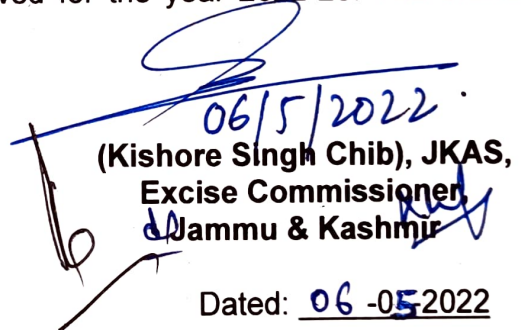 for the year
06/5/2022.
(Kishore Singh Chib), JKAS,
Excise Commissioner,
Jammu & Kashmir
Dated: 06 -05-2022